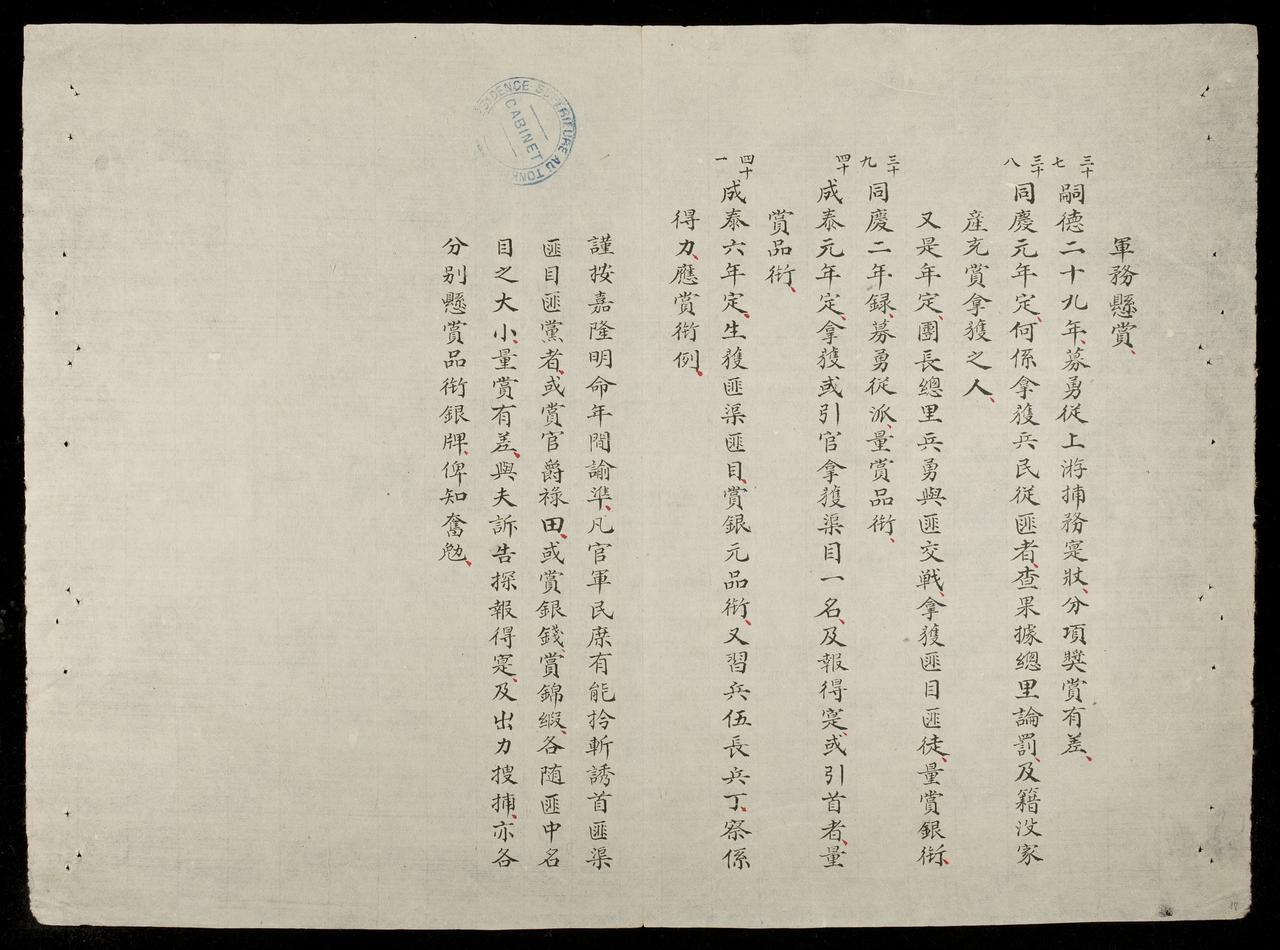 軍務懸賞、
三十七
嗣德二十九年、募勇従上游捕務寔狀、分項獎賞有差、
三十八
同慶元年定、何係拿獲兵民従匪者、查果據總里論罰、及籍没家
産充賞拿獲之人、
又是年定、團長總里兵勇與匪交戦、拿獲匪目匪徒、量賞銀銜、
三十九
同慶二年録、募勇従派、量賞品銜、
四十
成泰元年定、拿獲或引官拿獲渠目一名、及報得寔、或引首者、量
賞品銜、
四十一
成泰六年定、生獲匪渠匪目、賞銀元品銜、又習兵伍長兵丁、察係
得力、應賞銜例、
謹按嘉隆明命年間諭準、凡官軍民庶有能拎斬誘首匪渠
匪目匪黨者、或賞官爵祿田、或賞銀錢、賞錦緞、各随匪中名
目之大小、量賞有差、與夫訴告探報得寔、及出力搜捕、亦各
分别懸賞品銜銀牌、俾知奮勉、
RÉSIDENCE SUPÉRIEURE AU TONKIN
CABINET